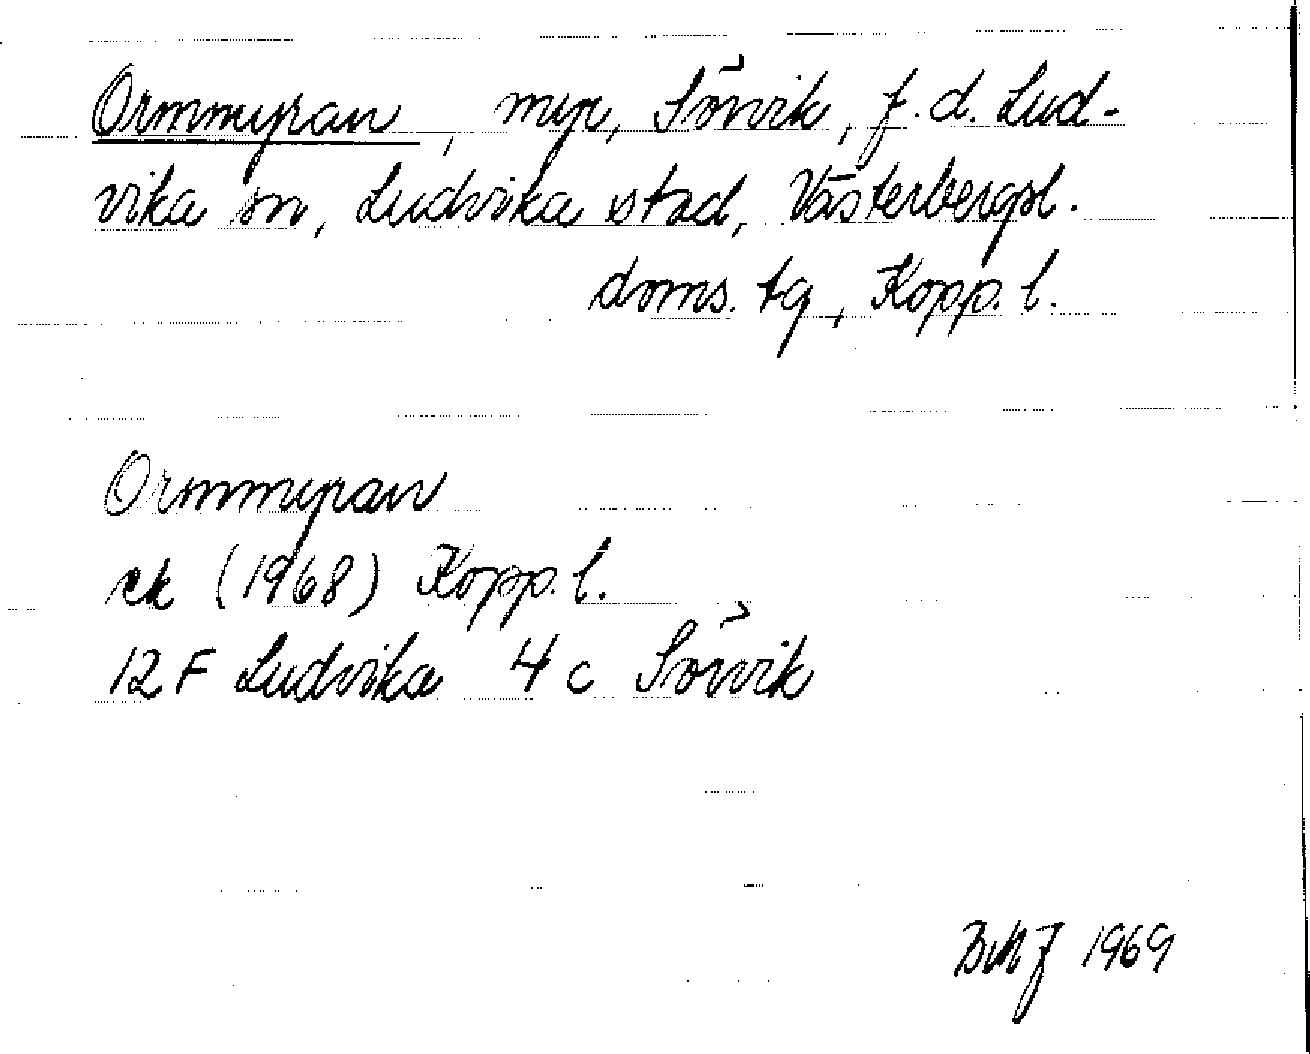 Ormmyran, myr, Sörvik, f.d. Lud-
vika sn, Ludvika stad, Västerbergsl.
doms. tg, Kopp. l.
Ormmyran
ek (1968) Kopp. l.
12 F Ludvika 4 c Sörvik
1969